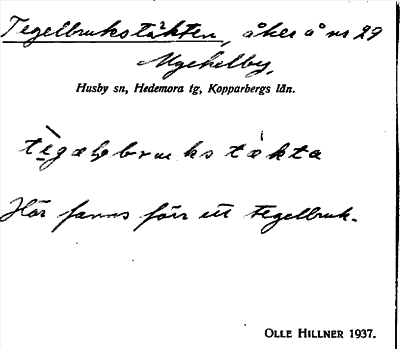 Tegelbrukstäkten, åker å nr 29
Myckelby,
Husby sn, Hedemora tg, Kopparbergs län.
Här fanns förr ett tegelbruk.
OLLE HILLNER 1937.